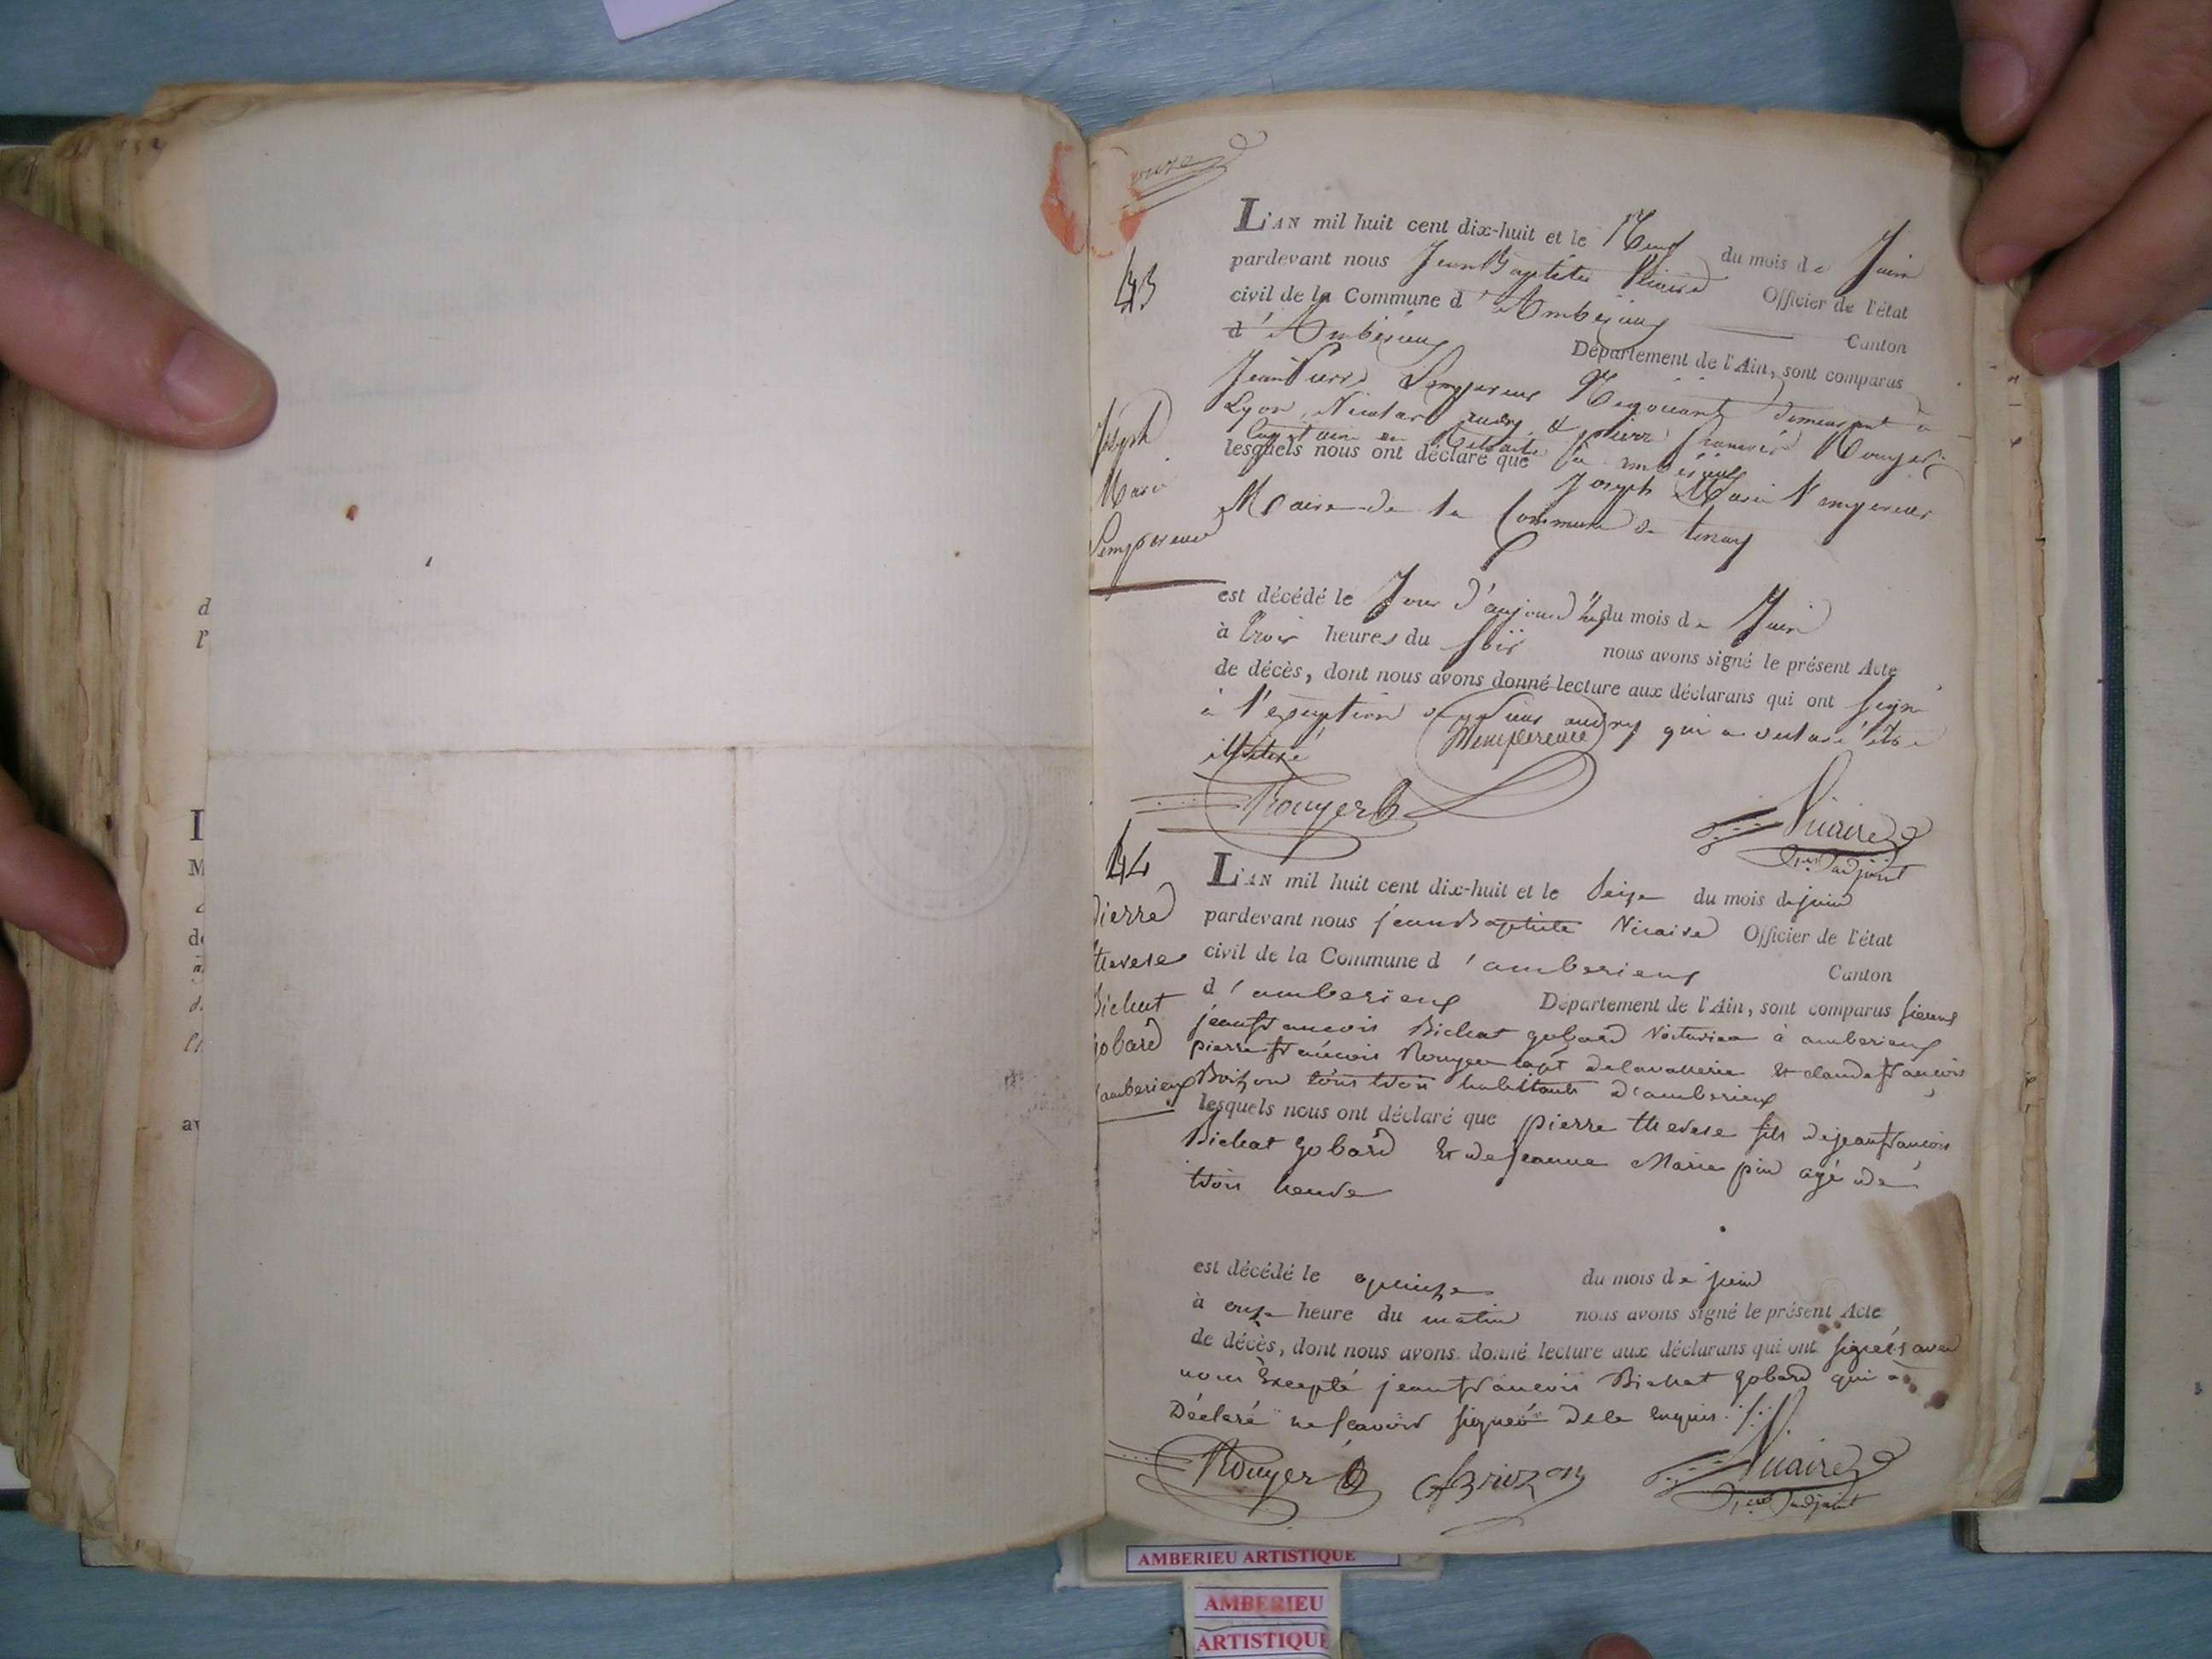 43
Joseph
Marie
Lempereur
L'AN mil huit cent dix-huit et le Neuf du mois de Juin
pardevant nous Jean Baptiste Vicaire Officier de l'état
civil de la Commune d'Ambérieux Canton
d'Ambérieux Département de l'Ain, sont comparus
Jean Pierre Lempereur Négociant demeurant à
Lyon, Nicolas audry & pierre francois Rouyer
Capitaine en Retraite à ambérieux
lesquels nous ont déclaré que Joseph Marie l'empereur
Maire de la Commune de tenay
est décédé le Jour d'aujourd'huy du mois de Juin
à trois heures du soir nous avons signé le présent Acte
de décès, dont nous avons donné lecture aux déclarans qui ont signé
à l'exception de sieur audry qui a déclaré être
illitéré
Lempereur
Rouyer
Vicaire
1er adjoint
44
Pierre
therese
Bichat
gobard
d'amberieux
L'AN mil huit cent dix-huit et le Seize du mois de juin
pardevant nous jean Baptiste Vicaire Officier de l'état
civil de la Commune d'amberieux Canton
d'amberieux Département de l'Ain, sont comparus sieurs
jean francois Bichat gobard Voiturier à amberieux
pierre francois Rouyer capt de cavallerie et claude francois
Brizon tous trois habitants d'amberieux
lesquels nous ont déclaré que pierre therese fils de jean francois
Bichat gobard et de jeanne Marie pin agé de
trois heure
est décédé le quinze du mois de juin
à onze heure du matin nous avons signé le présent Acte
de décès, dont nous avons donné lecture aux déclarans qui ont signés avec
nous Excepté jean francois Bichat gobard qui a
Déclaré ne scavoir signer de ce enquis
Rouyer
Brizon
Vicaire
1er adjoint
AMBERIEU ARTISTIQUE
AMBERIEU
ARTISTIQUE